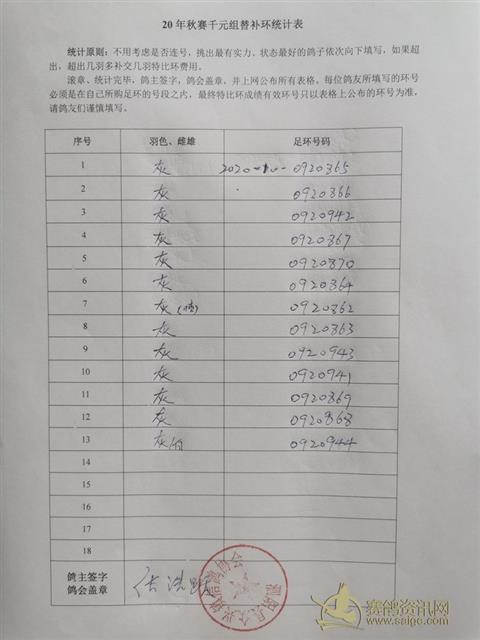 20年秋赛千元组替补环统计表
统计原则：不用考虑是否连号，挑出最有实力、状态最好的鸽子依次向下填写，如果超
出，超出几羽多补交几羽特比环费用。
滚章、统计完毕，鸽主签字，鸽会盖章，并上网公布所有表格。每位鸽友所填写的环号
必须是在自己所购足环的号段之内，最终特比环成绩有效环号只以表格上公布的环号为准，
请鸽友们谨慎填写。
序号 羽色、雌雄 足环号码
1 灰 2020-10-0920865
2 灰 0920866
3 灰 0920942
4 灰 0920867
5 灰 0920870
6 灰 0920864
7 灰 0920862
8 灰 0920863
9 灰 0920943
10 灰 0920941
11 灰 0920869
12 灰 0920868
13 灰 0920944
14
15
16
17
18
鸽主签字
鸽会盖章
赛鸽资讯网
www.saigo.com